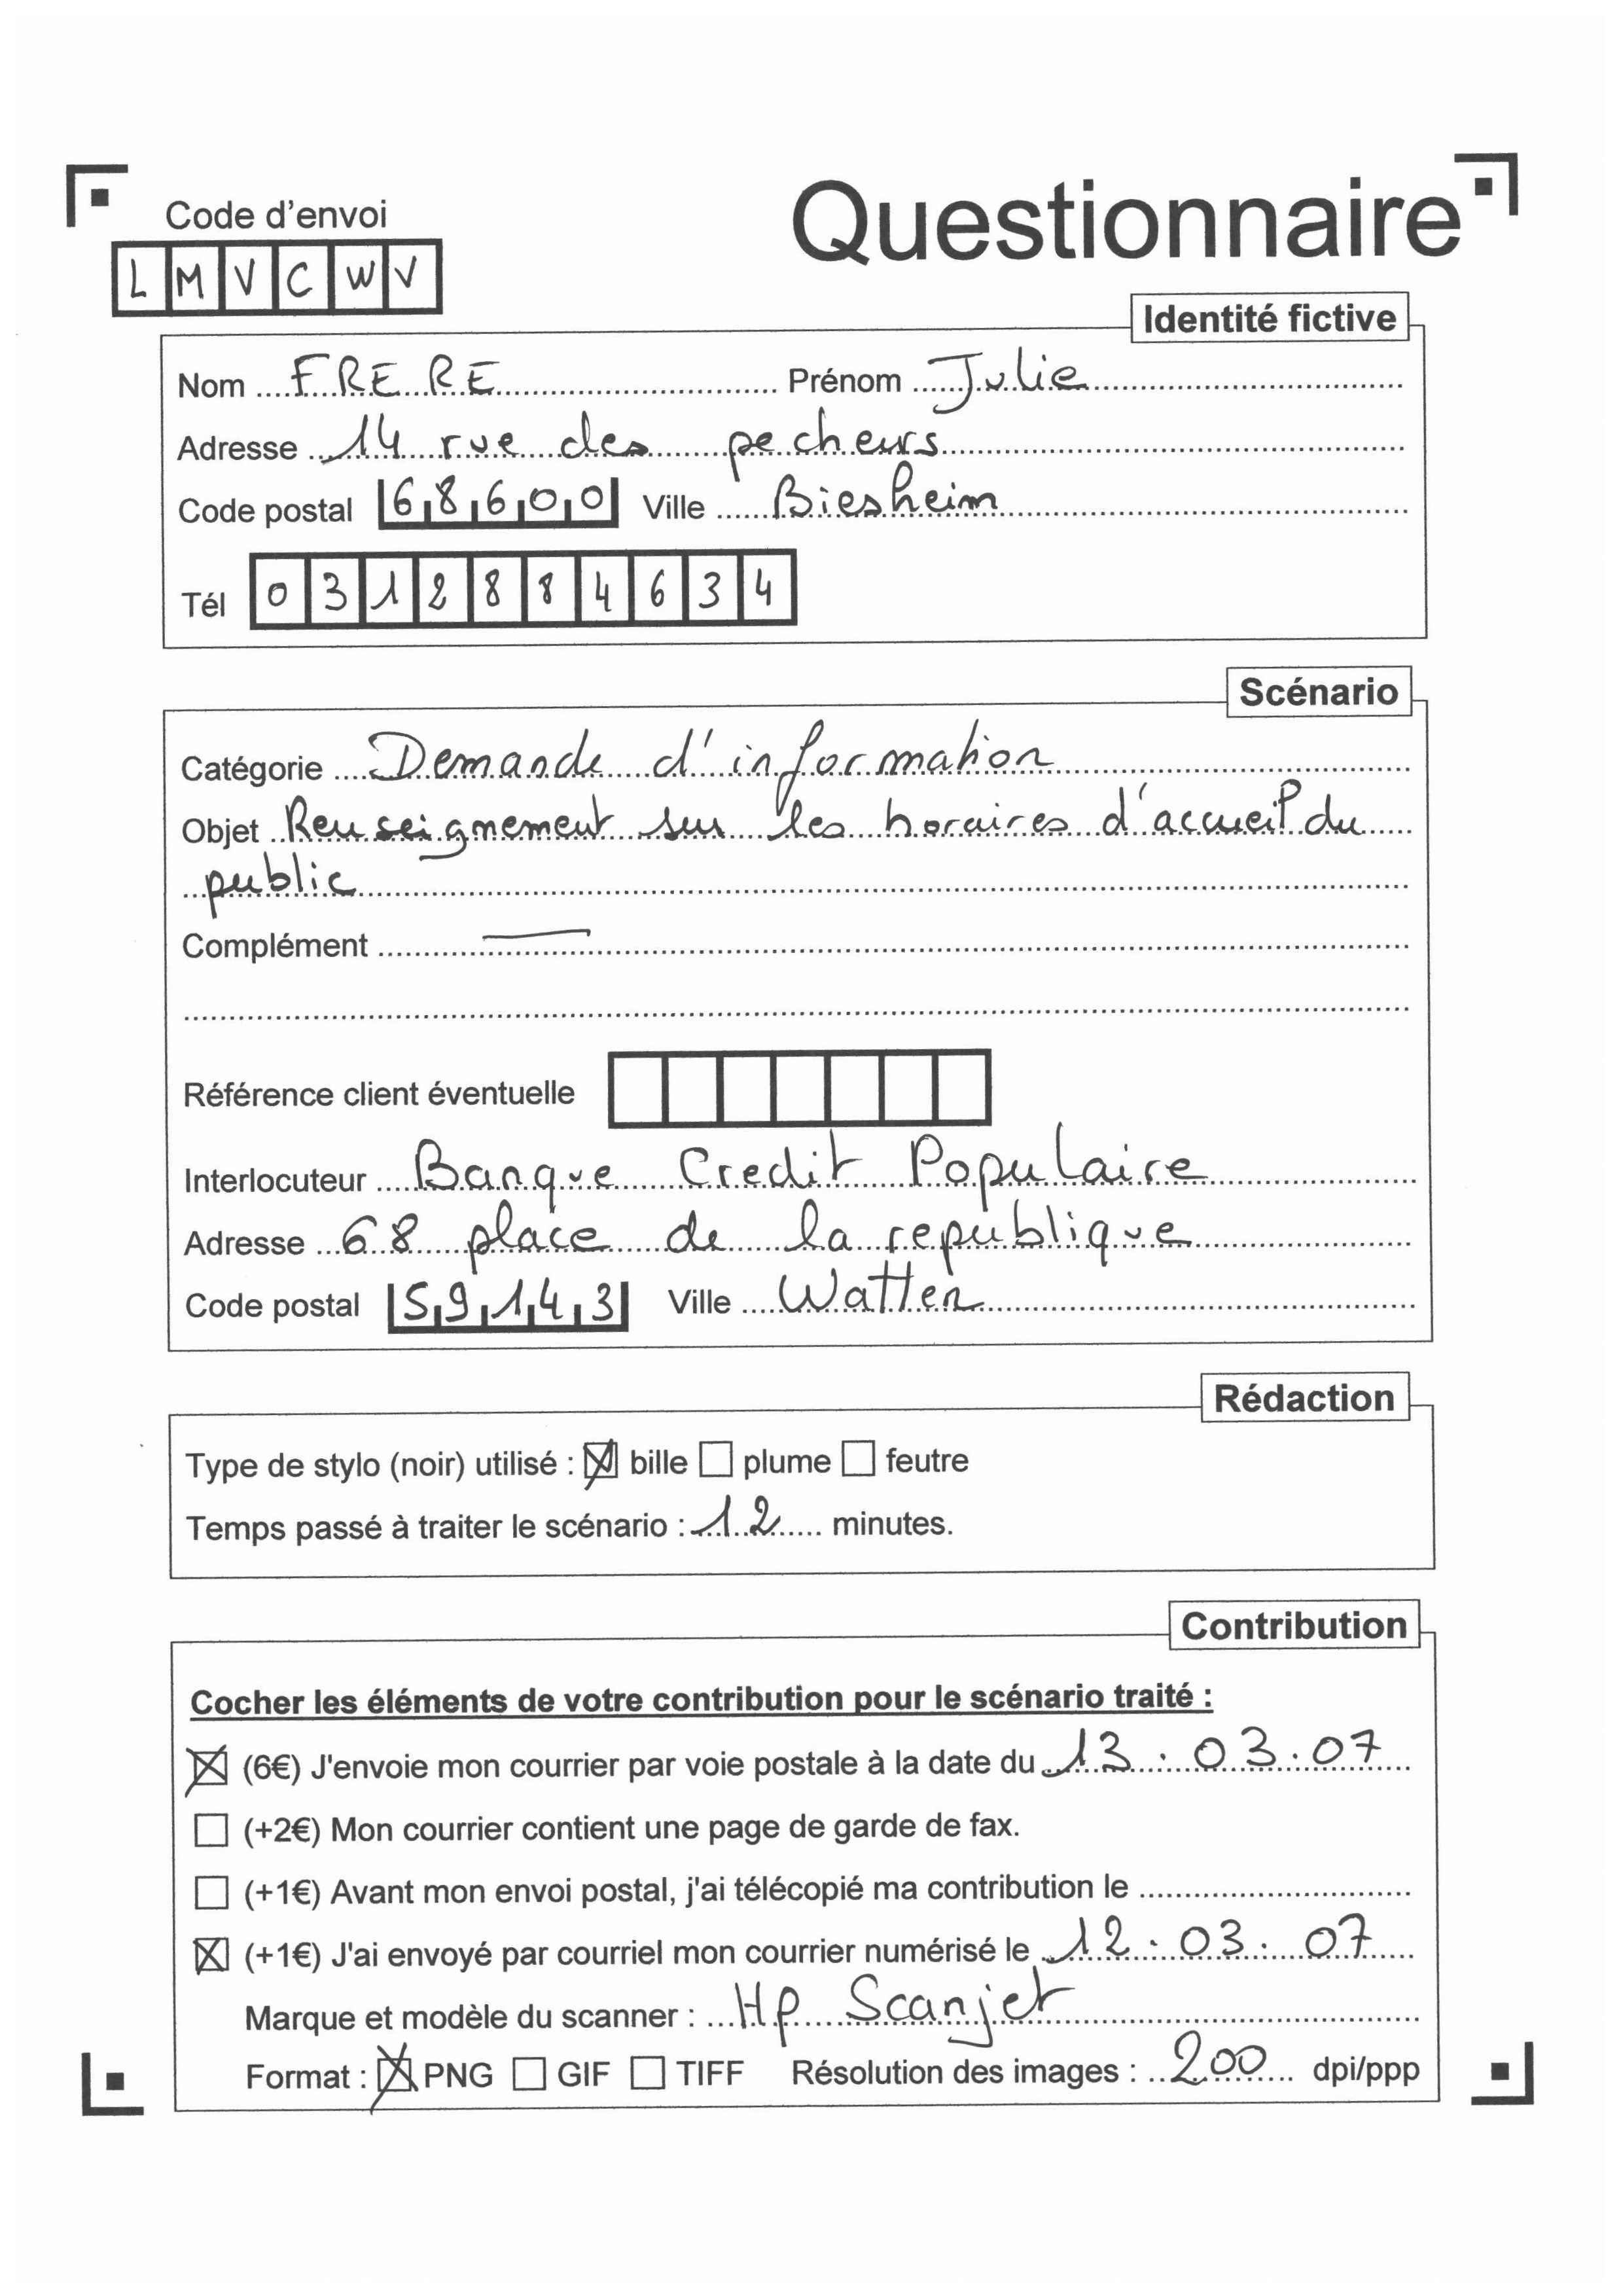 Questionnaire
Code d'envoi
LMVCWV
Identité fictive
Nom FRERE Prénom Julie
Adresse 14 rue des pecheurs
Code postal 68600 Ville Biesheim
Tél 0312884634
Scénario
Catégorie Demande d'information
Objet Renseignement sur les horaires d'accueil du
public
Complément —
Référence client éventuelle
Interlocuteur Banque Credit Populaire
Adresse 68 place de la republique
Code postal 59143 Ville Watten
Rédaction
Type de stylo (noir) utilisé : ☒ bille ☐ plume ☐ feutre
Temps passé à traiter le scénario : 12 minutes.
Contribution
Cocher les éléments de votre contribution pour le scénario traité :
☒ (6€) J'envoie mon courrier par voie postale à la date du 13.03.07
☐ (+2€) Mon courrier contient une page de garde de fax.
☐ (+1€) Avant mon envoi postal, j'ai télécopié ma contribution le
☒ (+1€) J'ai envoyé par courriel mon courrier numérisé le 12.03.07
Marque et modèle du scanner : Hp Scanjet
Format : ☒ PNG ☐ GIF ☐ TIFF Résolution des images : 200 dpi/ppp